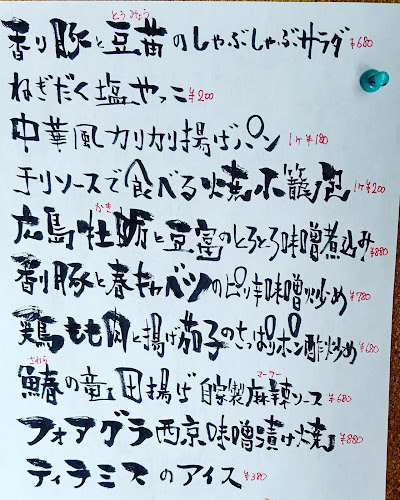 とうみょう
香り豚と豆苗のしゃぶしゃぶサラダ ¥680
ねぎだく塩やっこ ¥200
中華風カリカリ揚げパン 1ケ¥180
チリソースで食べる焼小籠包 1ケ¥200
かき
広島牡蛎と豆富のとろとろ味噌煮込み ¥880
香り豚と春キャベツのピリ辛味噌炒め ¥780
鶏もも肉と揚げ茄子のさっぱりポン酢炒め ¥680
さわら マーラー
鰆の竜田揚げ 自家製麻辣ソース ¥680
フォアグラ西京味噌漬け焼 ¥880
ティラミスのアイス ¥380